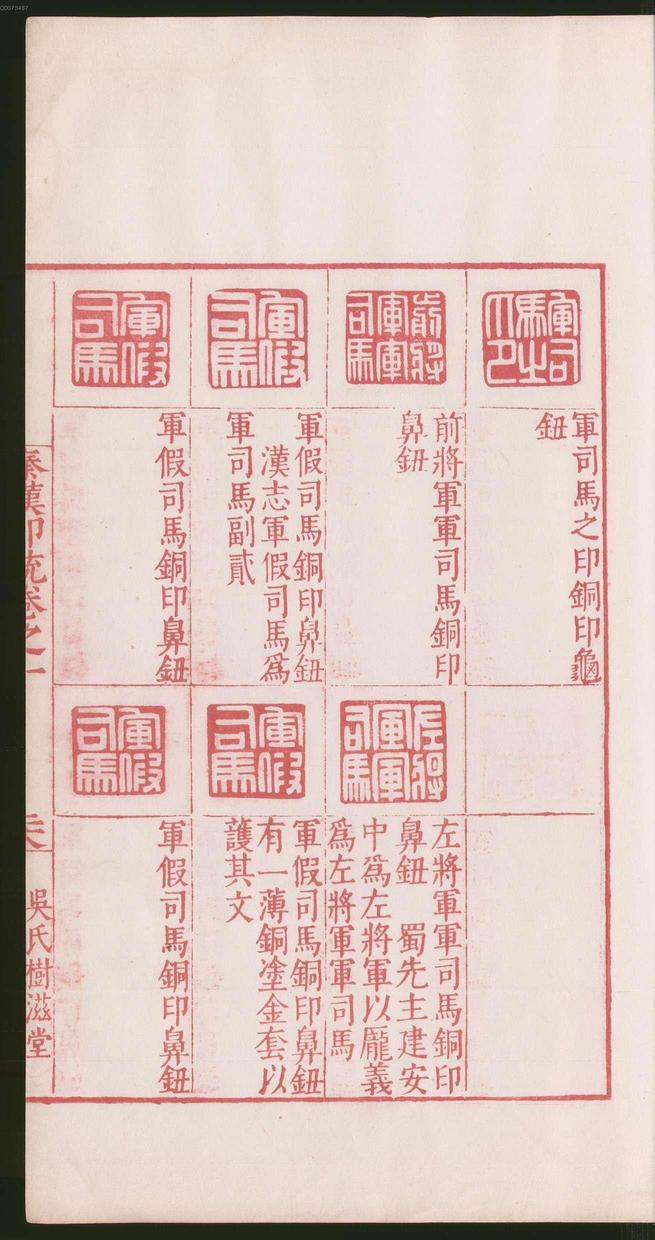 00073487
軍司馬之印
軍司馬之印銅印龜
鈕
前將軍軍司馬
前將軍軍司馬銅印
鼻鈕
軍假司馬
軍假司馬銅印鼻鈕
漢志軍假司馬爲
軍司馬副貳
軍假司馬
軍假司馬銅印鼻鈕
左將軍軍司馬
左將軍軍司馬銅印
鼻鈕 蜀先主建安
中爲左將軍以龐義
爲左將軍軍司馬
軍假司馬
軍假司馬銅印鼻鈕
有一薄銅塗金套以
護其文
軍假司馬
軍假司馬銅印鼻鈕
秦漢印統卷之一
吳氏樹滋堂